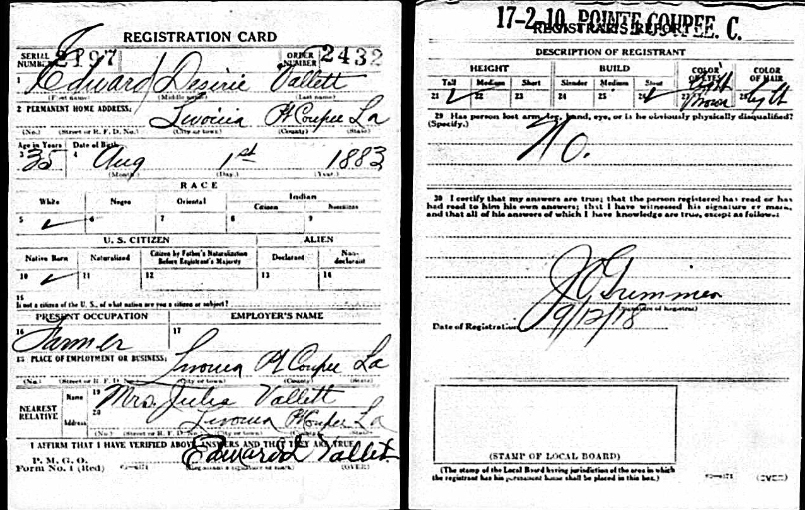 REGISTRATION CARD
SERIAL NUMBER 2197 ORDER NUMBER 2432
1 Edward Desirie Vallett
(First name) (Middle name) (Last name)
2 PERMANENT HOME ADDRESS:
Livonia Pt Coupee La
(No.) (Street or R. F. D. No.) (City or town) (County) (State)
Age in Years Date of Birth
3 35 4 Aug 1st 1883
(Month.) (Day.) (Year.)
RACE
White Negro Oriental Indian
Citizen Noncitizen
5 ✓ 6 7 8 9
U. S. CITIZEN ALIEN
Native Born Naturalized Citizen by Father's Naturalization Before Registrant's Majority Declarant Non-declarant
10 ✓ 11 12 13 14
15
If not a citizen of the U. S., of what nation are you a citizen or subject?
PRESENT OCCUPATION EMPLOYER'S NAME
16 Farmer 17
18 PLACE OF EMPLOYMENT OR BUSINESS:
Livonia Pt Coupee La
(No.) (Street or R. F. D. No.) (City or town) (County) (State)
NEAREST RELATIVE Name 19 Mrs. Julia Vallett
Address 20 Livonia Pt Coupee La
(No.) (Street or R. F. D. No.) (City or town) (County) (State)
I AFFIRM THAT I HAVE VERIFIED ABOVE ANSWERS AND THAT THEY ARE TRUE
P. M. G. O.
Form No. 1 (Red) Edward Vallet
(Registrant's signature or mark) (OVER)
17-2-10 POINTE COUPEE. C.
REGISTRAR'S REPORT
DESCRIPTION OF REGISTRANT
HEIGHT BUILD COLOR OF EYES COLOR OF HAIR
Tall Medium Short Slender Medium Stout
21 ✓ 22 23 24 25 26 ✓ 27 Light Brown 28 Light
29 Has person lost arm, leg, hand, eye, or is he obviously physically disqualified?
(Specify.)
No.
30 I certify that my answers are true; that the person registered has read or has
had read to him his own answers; that I have witnessed his signature or mark,
and that all of his answers of which I have knowledge are true, except as follows:
(Signature of Registrar)
Date of Registration 9/12/18
(STAMP OF LOCAL BOARD)
(The stamp of the Local Board having jurisdiction of the area in which
the registrant has his permanent home shall be placed in this box.)
(OVER)